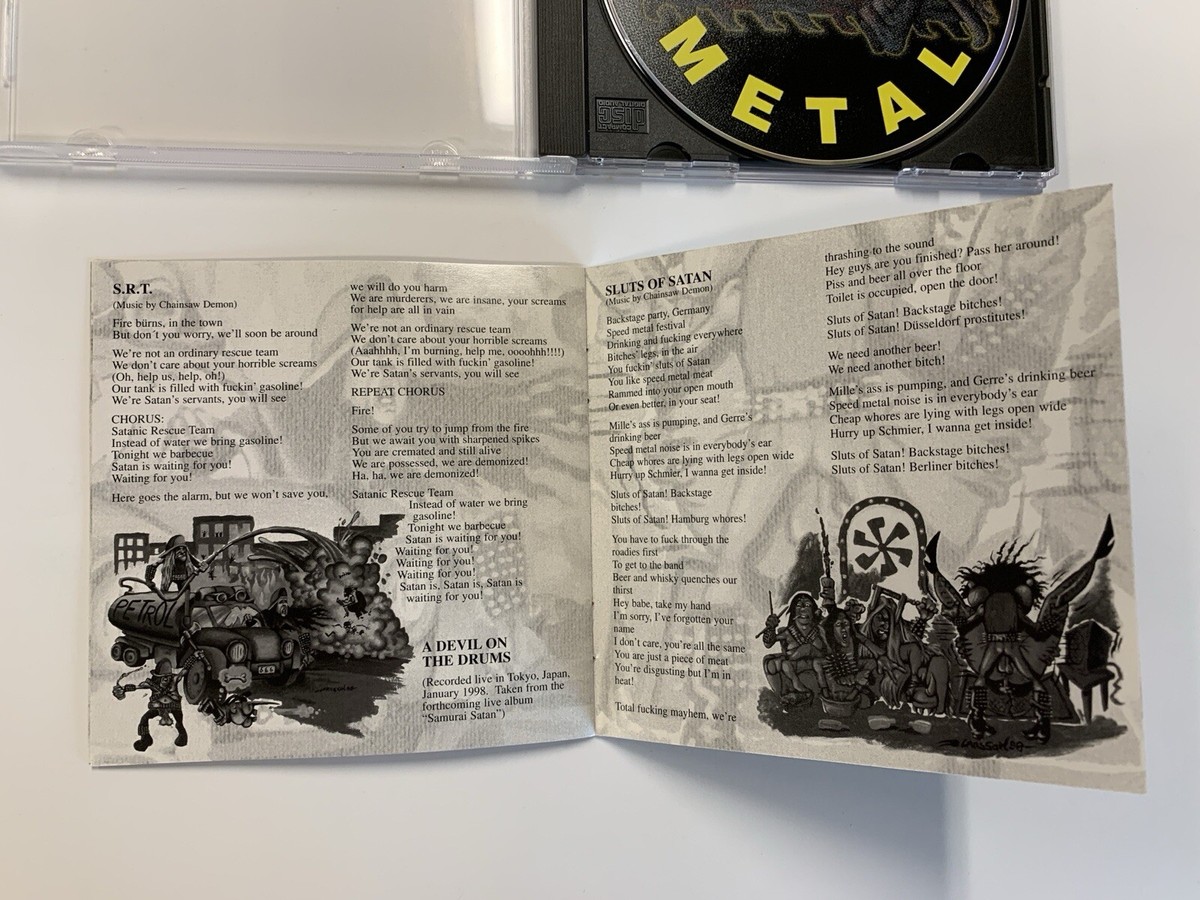 METAL
COMPACT
disc
DIGITAL AUDIO
S.R.T.
(Music by Chainsaw Demon)
Fire burns, in the town
But don´t you worry, we’ll soon be around
We’re not an ordinary rescue team
We don’t care about your horrible screams
(Oh, help us, help, oh!)
Our tank is filled with fuckin’ gasoline!
We’re Satan’s servants, you will see
CHORUS:
Satanic Rescue Team
Instead of water we bring gasoline!
Tonight we barbecue
Satan is waiting for you!
Waiting for you!
Here goes the alarm, but we won’t save you,
PETROL
666
we will do you harm
We are murderers, we are insane, your screams
for help are all in vain
We’re not an ordinary rescue team
We don’t care about your horrible screams
(Aaahhhh, I’m burning, help me, oooohhh!!!!)
Our tank is filled with fuckin’ gasoline!
We’re Satan’s servants, you will see
REPEAT CHORUS
Fire!
Some of you try to jump from the fire
But we await you with sharpened spikes
You are cremated and still alive
We are possessed, we are demonized!
Ha, ha, we are demonized!
Satanic Rescue Team
Instead of water we bring
gasoline!
Tonight we barbecue
Satan is waiting for you!
Waiting for you!
Waiting for you!
Waiting for you!
Satan is, Satan is, Satan is
waiting for you!
A DEVIL ON
THE DRUMS
(Recorded live in Tokyo, Japan,
January 1998. Taken from the
forthcoming live album
“Samurai Satan”)
SLUTS OF SATAN
(Music by Chainsaw Demon)
Backstage party, Germany
Speed metal festival
Drinking and fucking everywhere
Bitches’ legs, in the air
You fuckin’ sluts of Satan
You like speed metal meat
Rammed into your open mouth
Or even better, in your seat!
Mille’s ass is pumping, and Gerre’s
drinking beer
Speed metal noise is in everybody’s ear
Cheap whores are lying with legs open wide
Hurry up Schmier, I wanna get inside!
Sluts of Satan! Backstage
bitches!
Sluts of Satan! Hamburg whores!
You have to fuck through the
roadies first
To get to the band
Beer and whisky quenches our
thirst
Hey babe, take my hand
I’m sorry, I’ve forgotten your
name
I don’t care, you’re all the same
You are just a piece of meat
You’re disgusting but I’m in
heat!
Total fucking mayhem, we’re
thrashing to the sound
Hey guys are you finished? Pass her around!
Piss and beer all over the floor
Toilet is occupied, open the door!
Sluts of Satan! Backstage bitches!
Sluts of Satan! Düsseldorf prostitutes!
We need another beer!
We need another bitch!
Mille’s ass is pumping, and Gerre’s drinking beer
Speed metal noise is in everybody’s ear
Cheap whores are lying with legs open wide
Hurry up Schmier, I wanna get inside!
Sluts of Satan! Backstage bitches!
Sluts of Satan! Berliner bitches!